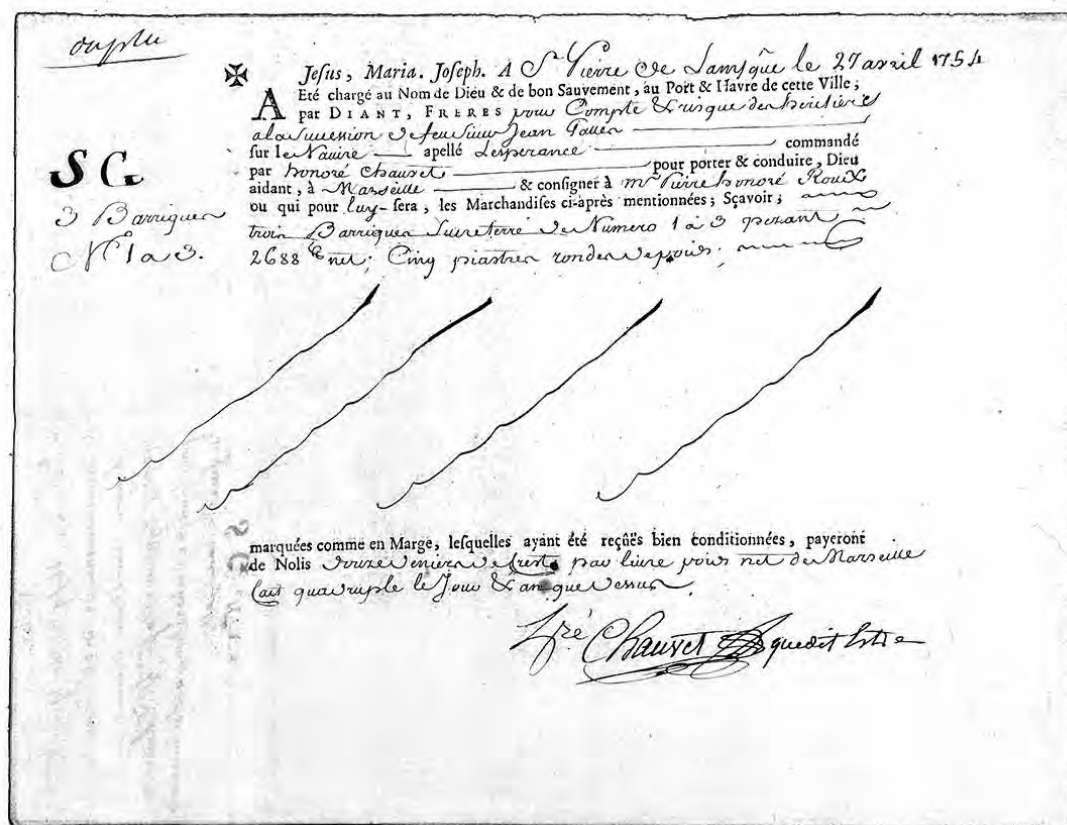 duplu
✠ Jesus, Maria. Joseph. A St Pierre de Lamsque le 27 avril 1754
A Eté chargé au Nom de Dieu & de bon Sauvement, au Port & Havre de cette Ville;
par DIANT, FRERES pour Compte & risque des heritiers
a la succession de feu sieur Jean
sur le Navire apellé Lesperance commandé
par honoré Chauvet pour porter & conduire, Dieu
aidant, à Marseille & consigner à mr Pierre honoré Roux
ou qui pour luy sera, les Marchandises ci-après mentionnées; Sçavoir;
trois Barriques Sucre terré de Numero 1 à 3 pezant
2688 lb net; Cinq piastres rondes de poids;
SG
3 Barriques
No 1 a 3.
marquées comme en Marge, lesquelles ayant été reçûës bien conditionnées, payeront
de Nolis douze deniers de par livre poids net de Marseille
fait quadruple le Jour & an que dessus
hre Chauvet que dit